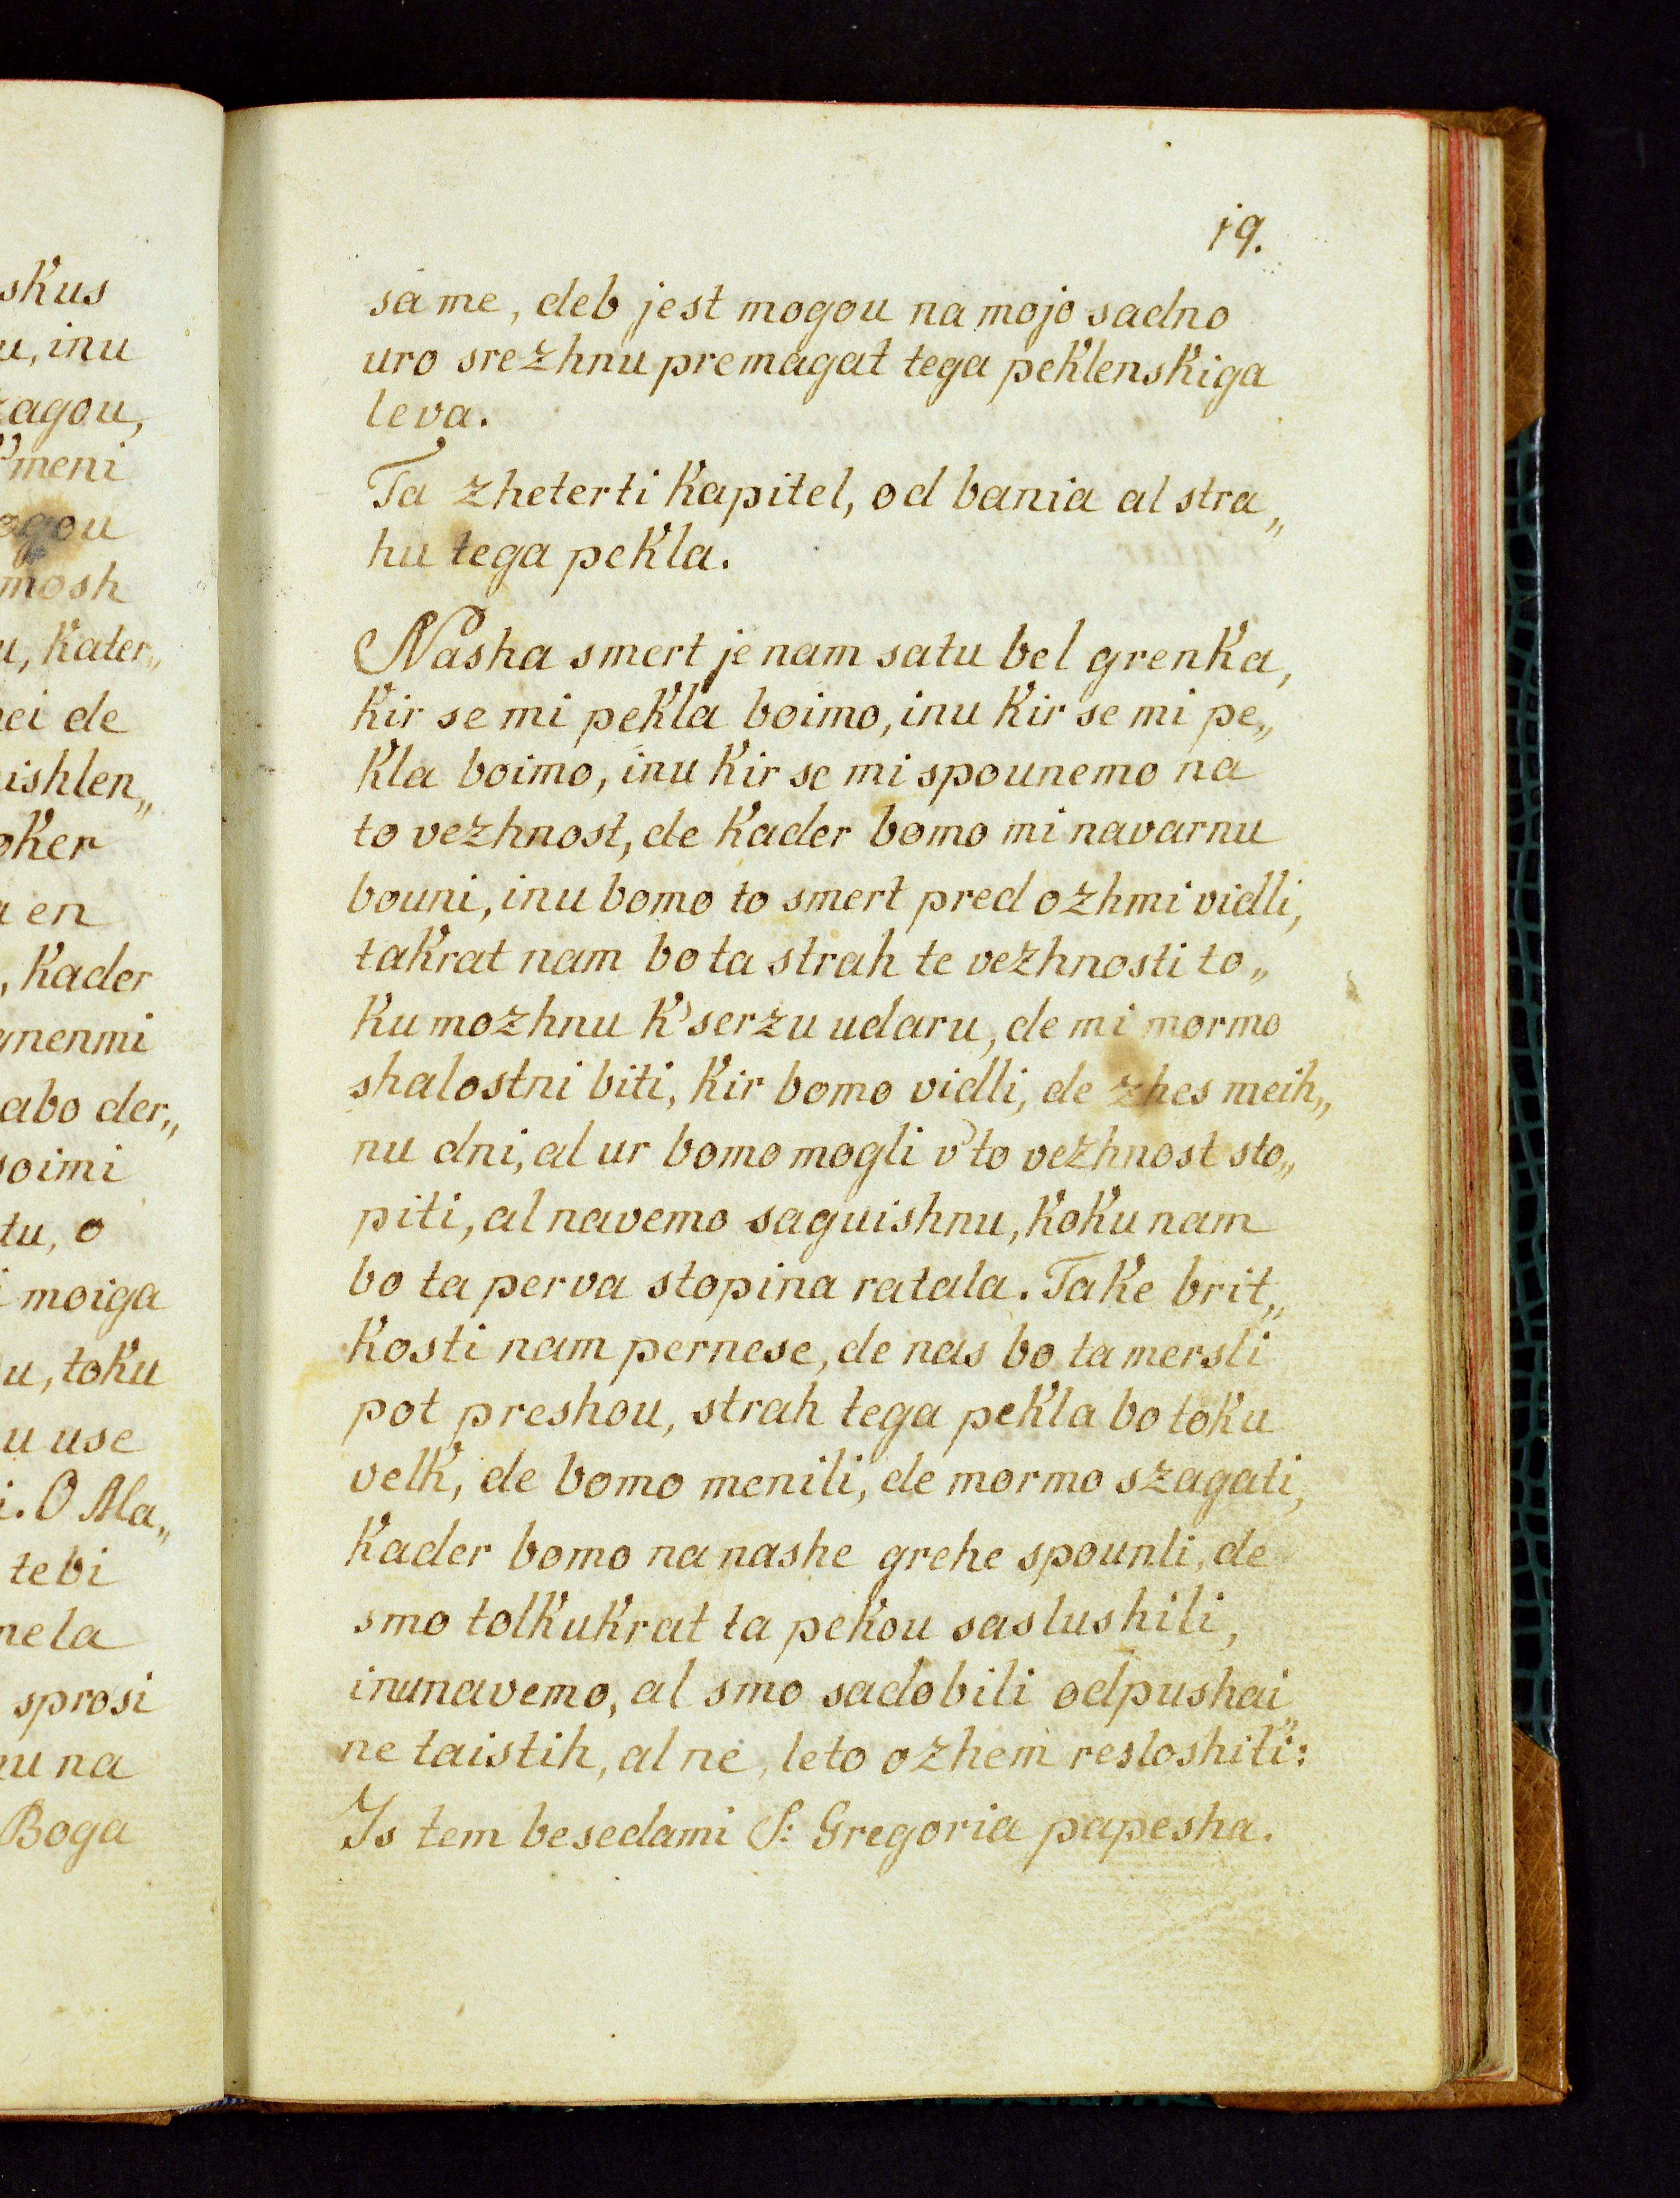 skus
u, inu
zagou,
k'meni
ogou
mosh
u, kater„
nei de
ishlen„
oker
a en
, kader
gnenmi
abo der„
soimi
tu, o
i moiga
u, toku
u use
i. O Ma„
tebi
nela
sprosi
nu na
Boga
19.
sa me, deb jest mogou na mojo sadno
uro srezhnu premagat tega peklenskiga
leva.
Ta zheterti kapitel, od bania al stra„
hu tega pekla.
Nasha smert je nam satu bel grenka,
kir se mi pekla boimo, inu kir se mi pe„
kla boimo, inu kir se mi spounemo na
to vezhnost, de kader bomo mi navarnu
bouni, inu bomo to smert pred ozhmi vidli,
takrat nam bo ta strah te vezhnosti to„
ku mozhnu k' serzu udaru, de mi mormo
shalostni biti, kir bomo vidli, de zhes meih„
nu dni, al ur bomo mogli v' to vezhnost sto„
piti, al navemo saguishnu, koku nam
bo ta perva stopina ratala. Take brit„
kosti nam pernese, de nas bo ta mersli
pot preshou, strah tega pekla bo toku
velk, de bomo menili, de mormo szagati,
kader bomo na nashe grehe spounli, de
smo tolkukrat ta pekou saslushili,
inu navemo, al smo sadobili odpushai„
ne taistih, al ne, leto ozhem resloshiti:
Is tem besedami S: Gregoria papesha.